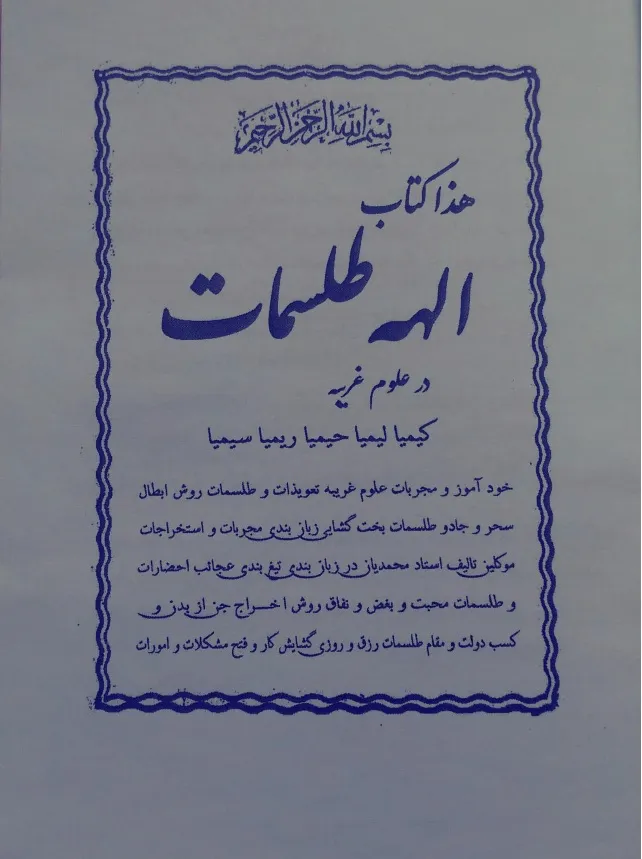 بسم الله الرحمن الرحیم
هذا کتاب
الهه طلسمات
در علوم غریبه
کیمیا لیمیا حیمیا ریمیا سیمیا
خود آموز و مجربات علوم غریبه تعویذات و طلسمات روش ابطال
سحر و جادو طلسمات بخت گشایی زبان بندی مجربات و استخراجات
موکلین تالیف استاد محمدیان در زبان بندی تیغ بندی عجائب احضارات
و طلسمات محبت و بغض و نفاق روش اخراج جن از بدن و
کسب دولت و مقام طلسمات رزق و روزی گشایش کار و فتح مشکلات و امورات